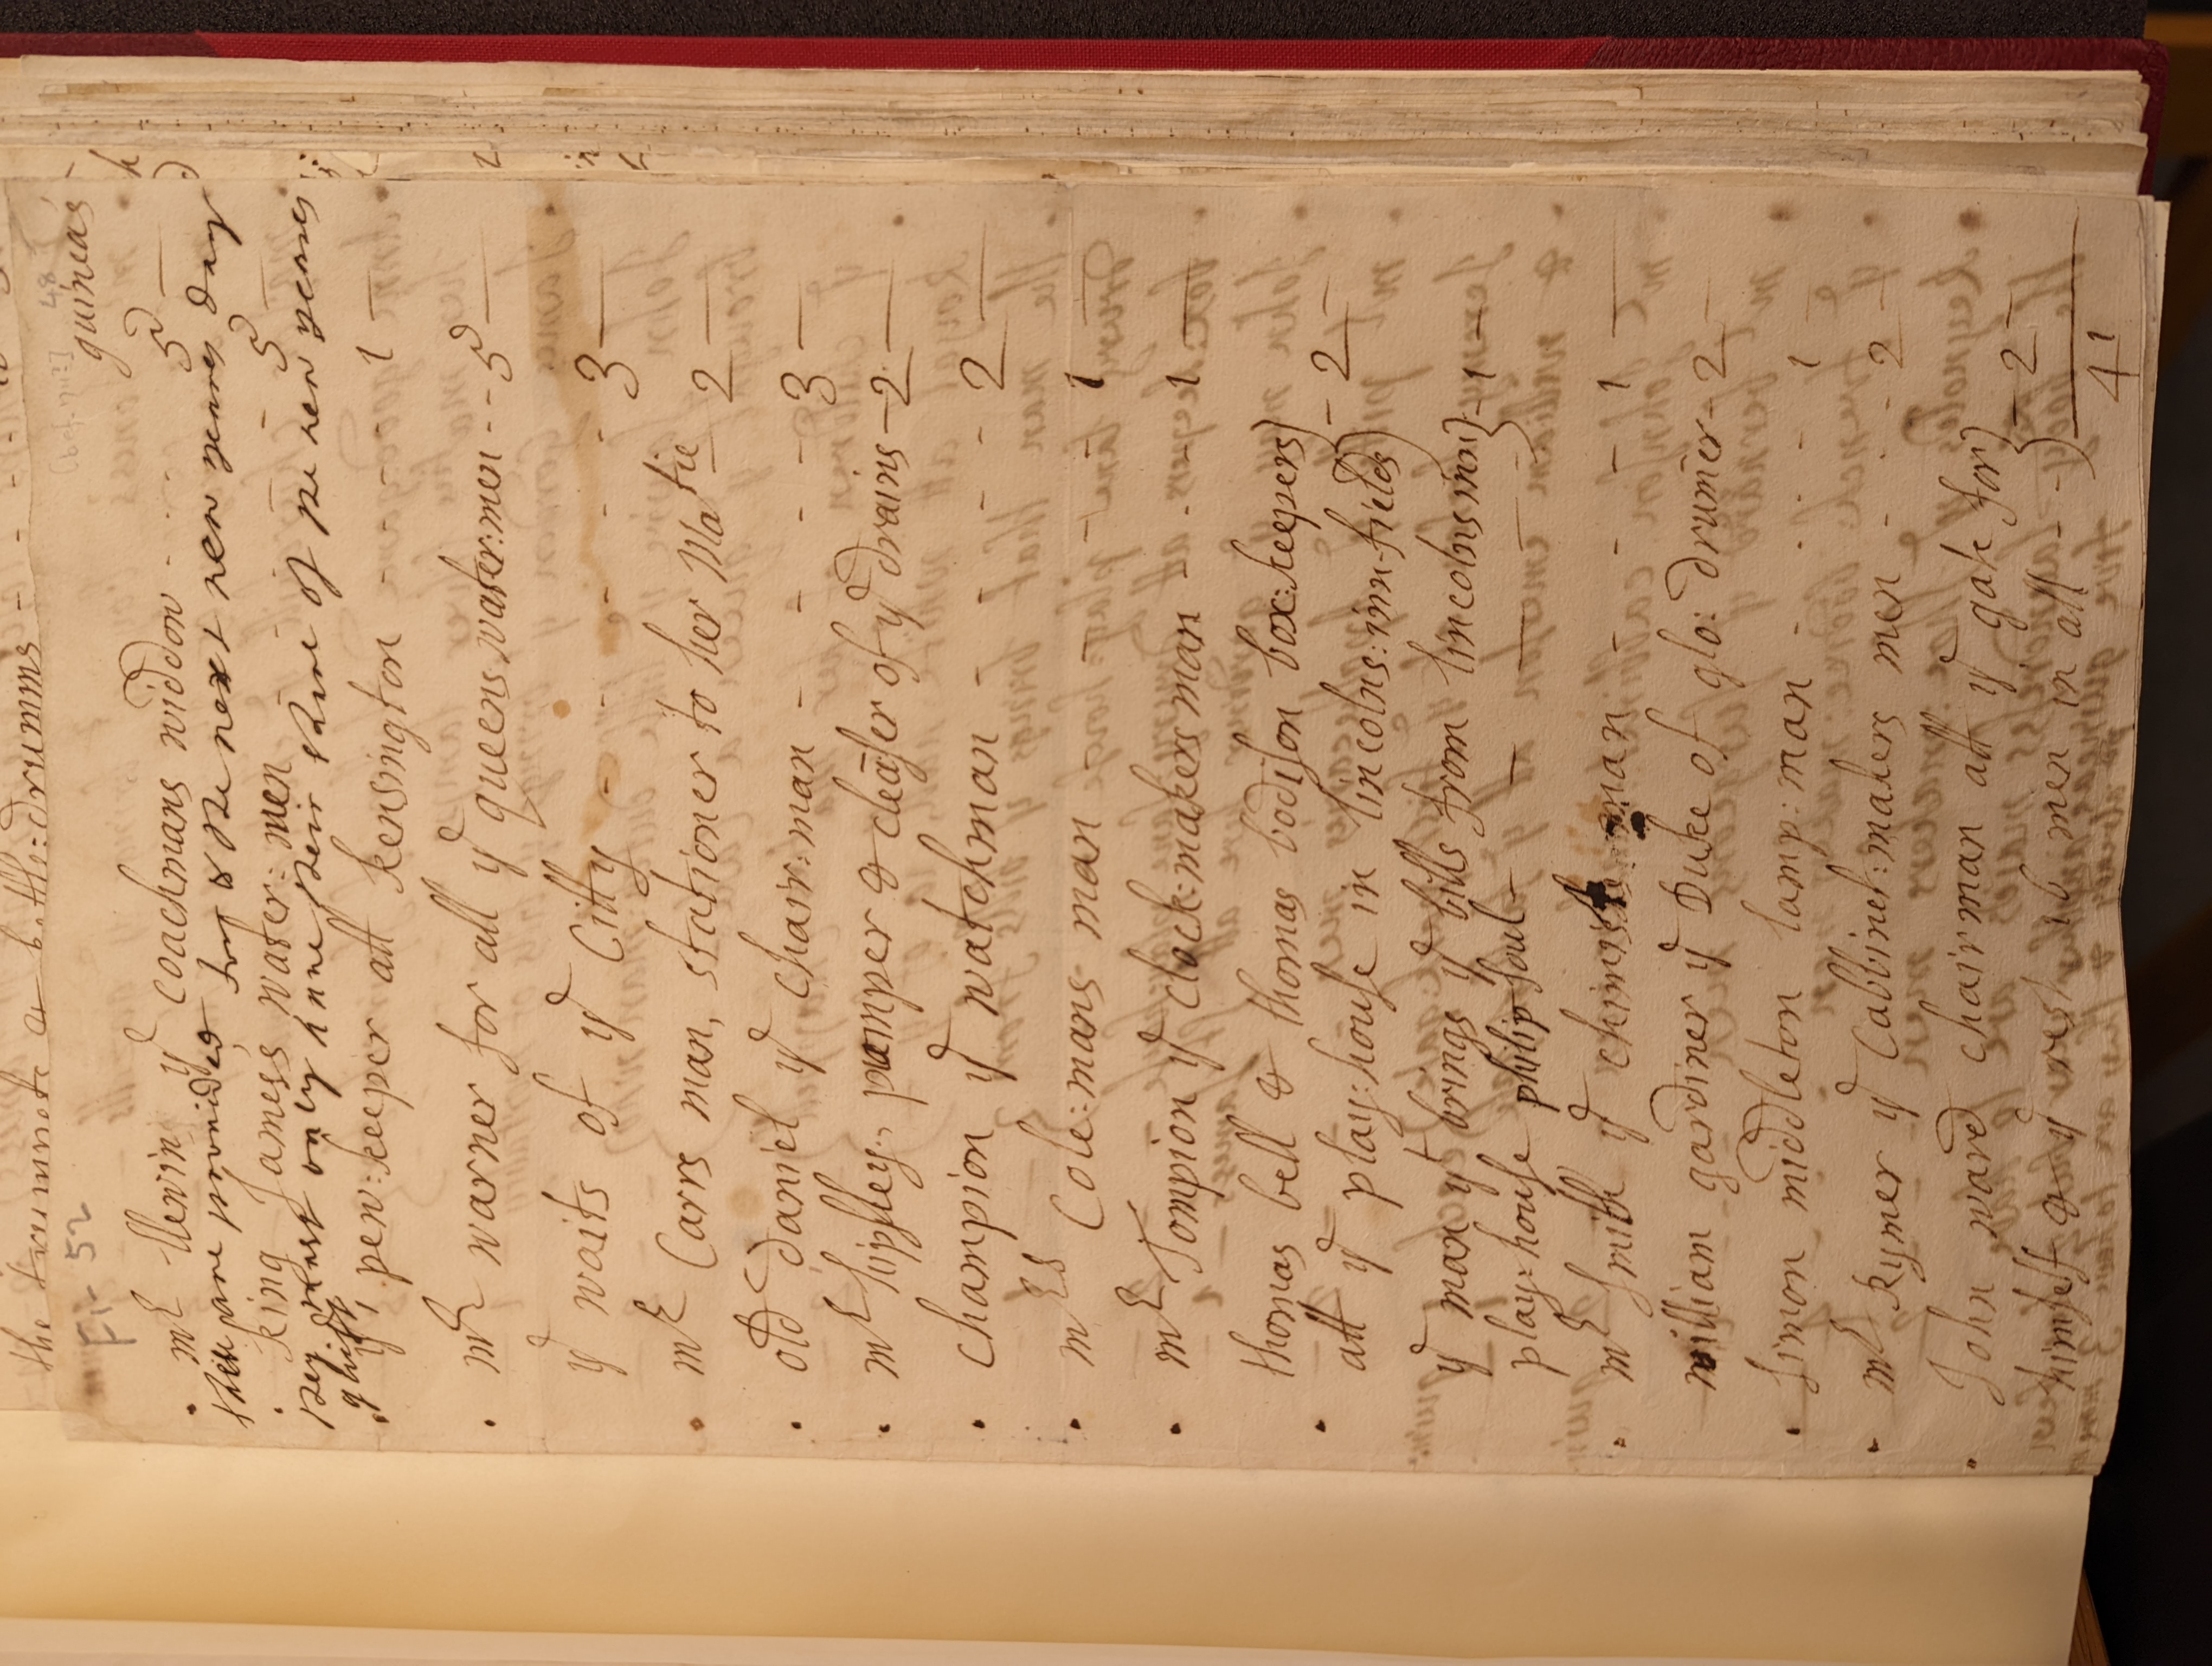 the trumpets & kettle:drumms
F. 52
48
guineas
mr Merin ye coachmans widdow - - 5
shee bare provided for & the next new yeares day
king Jamess water:men - 5
they must only have their share of the new yeares
ghift
ye pew:keeper att kensington - - - 1
mr warner for all ye queens water:men - - - 5
ye waits of ye Citty - - - - 3
mr Carrs man, stationer to her Matie 2
old Daniel ye chair:man - - - - 3
mr Sippsley: pamper & cleaser of ye drains - 2
champion ye watchman - - - - 2
mrs Cole:mans man - - - 1
mr Tompion ye clock:makers man - - - 1
thomas bell & thomas bodison box:keepers
att ye play:house in lincolns:inn-fields - 2
ye man yt brings ye bills from lincolns inn
play:house philip foul - 1
mr Smith ye chimist: man - - - 1
william gardiner ye Duke of glo: drumer - 2
Simon middleton lamp:man - - - 1
mr Rymer ye Cabbinet:makers men - - - 2
John ward chairman att ye gate for
himself & ye rest 16 men in all - 2
41